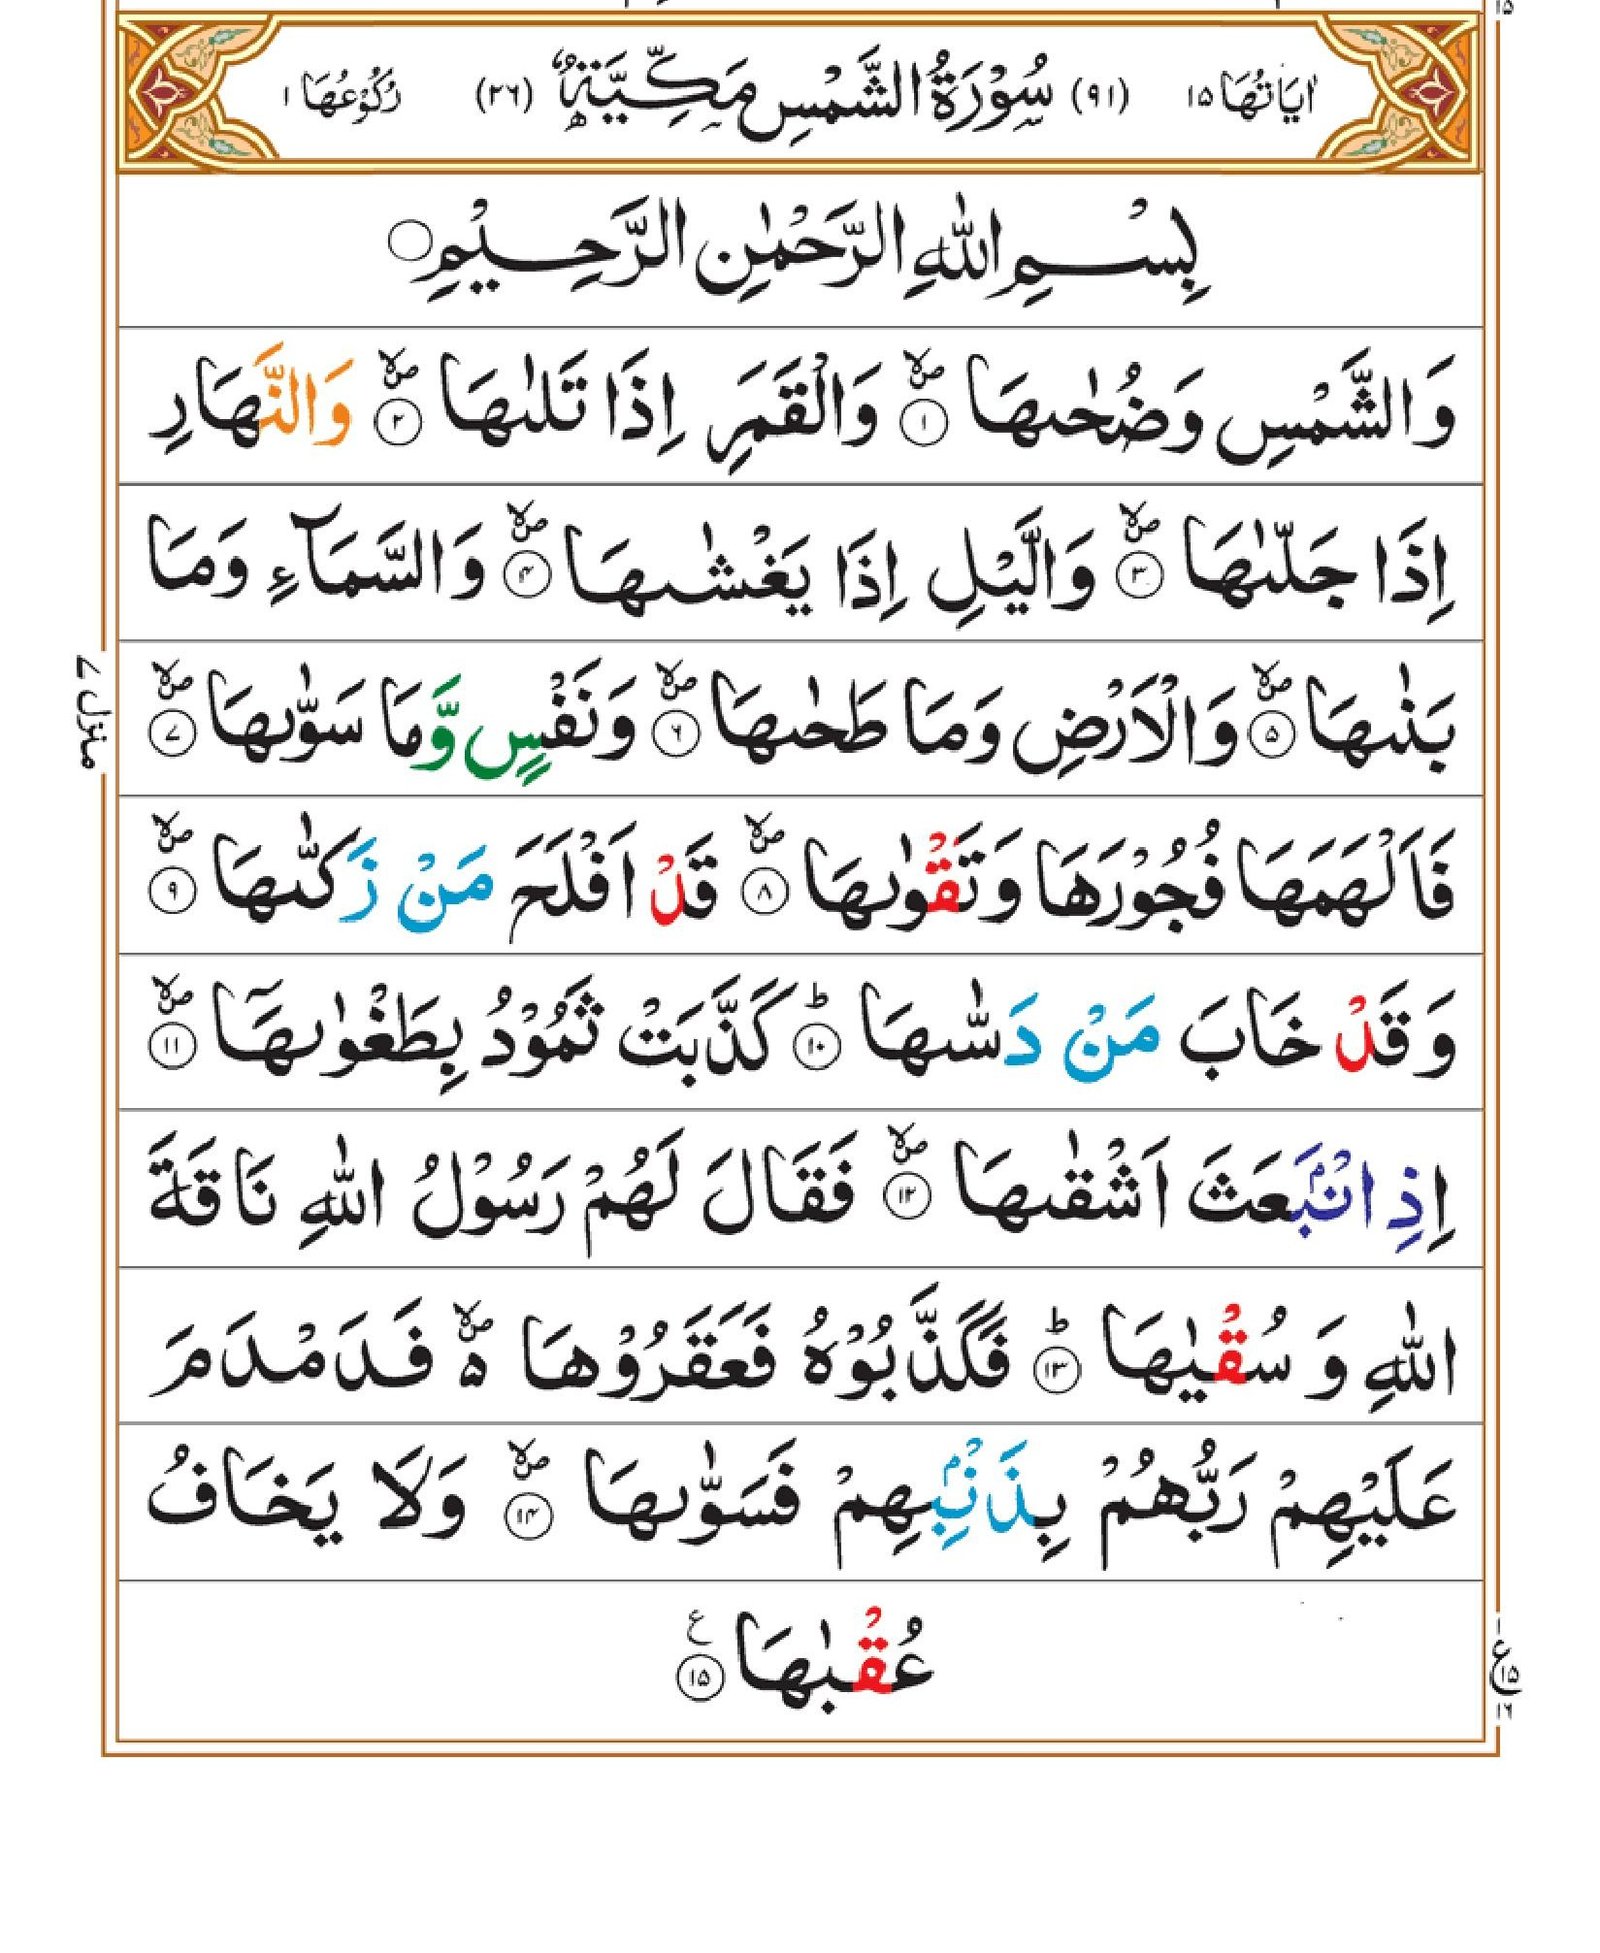 اٰيَاتُهَا ١٥ (٩١) سُوْرَةُ الشَّمْسِ مَكِّيَّةٌ (٢٦) رُكُوْعُهَا ١
بِسْمِ اللّٰهِ الرَّحْمٰنِ الرَّحِيْمِ ○
وَالشَّمْسِ وَضُحٰىهَا ۙ‏ ١ وَالْقَمَرِ اِذَا تَلٰىهَا ۙ ٢ وَالنَّهَارِ
اِذَا جَلّٰىهَا ۙ ٣ وَالَّيْلِ اِذَا يَغْشٰىهَا ۙ ٤ وَالسَّمَآءِ وَمَا
بَنٰىهَا ۙ ٥ وَالْاَرْضِ وَمَا طَحٰىهَا ۙ ٦ وَنَفْسٍ وَّمَا سَوّٰىهَا ۙ ٧
منزل ٧
فَاَلْهَمَهَا فُجُوْرَهَا وَتَقْوٰىهَا ۙ ٨ قَدْ اَفْلَحَ مَنْ زَكّٰىهَا ۙ ٩
وَقَدْ خَابَ مَنْ دَسّٰىهَا ؕ ١٠ كَذَّبَتْ ثَمُوْدُ بِطَغْوٰىهَاۤ ۙ ١١
اِذِ انْۢبَعَثَ اَشْقٰىهَا ۙ ١٢ فَقَالَ لَهُمْ رَسُوْلُ اللّٰهِ نَاقَةَ
اللّٰهِ وَ سُقْيٰهَا ؕ ١٣ فَكَذَّبُوْهُ فَعَقَرُوْهَا ۙ ٥ فَدَمْدَمَ
عَلَيْهِمْ رَبُّهُمْ بِذَنْۢبِهِمْ فَسَوّٰىهَا ۙ ١٤ وَلَا يَخَافُ
عُقْبٰهَا ع ١٥
١
ع ١٥
١٦